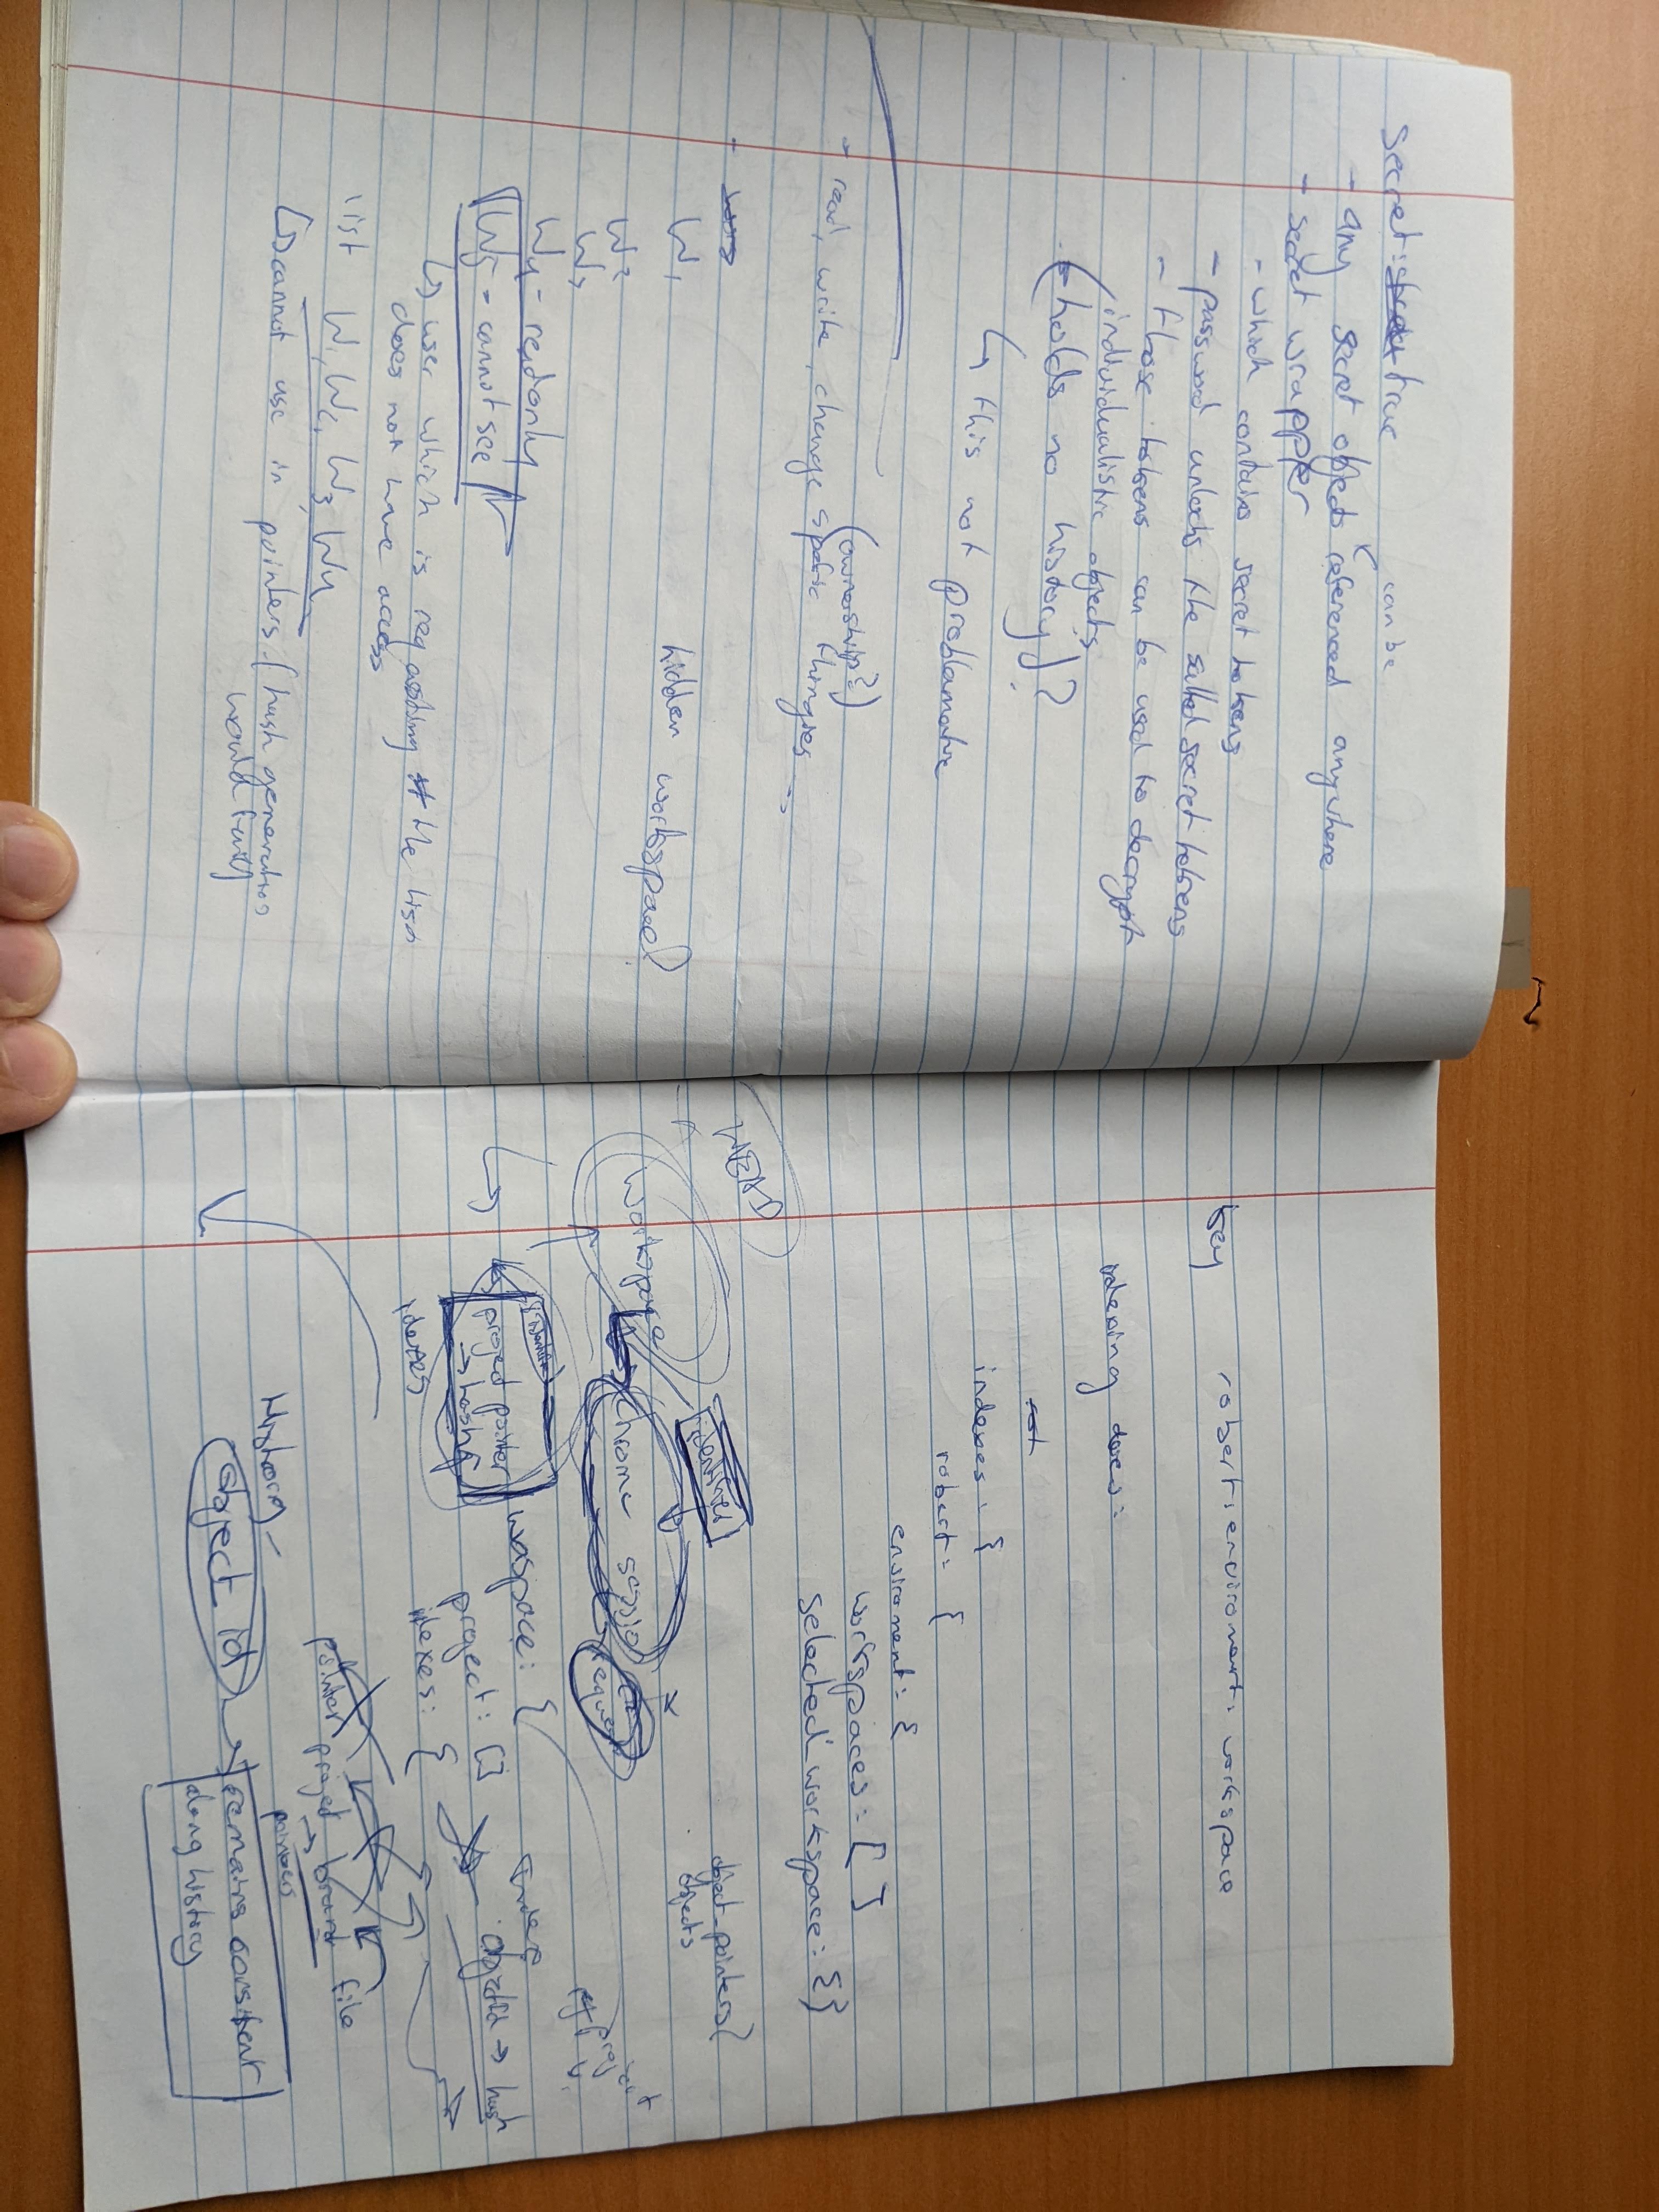 Secret: true
- any secret objects can be referenced anywhere
- secret wrapper
- which contains secret tokens
- password unlocks the salted secret tokens
- those tokens can be used to decrypt
individualistic objects
(holds no history)?
↳ this not problamative
- read, write, change spefic thingies
(ownership?)
-
W1
hidden workspace?
W2
W3
W4 - redonly
W5 - cannot see
↳ user which is requesting the list
does not have access
list W1, W2, W3, W4
↳ cannot use in pointers. (hash generation
would fail)
key robert: environment: workspace
indexing does:
indexes: {
robert: {
enviroment: {
workspaces: [ ]
selected workspace: {}
object-pointers
objects
HEAD
identifier
workspace
chrome session
request
project pointer
→ hash
workspace: {
project: []
index
objectId → hash
project
History
pointer project → file
pointers
object id → remains consistent
along history